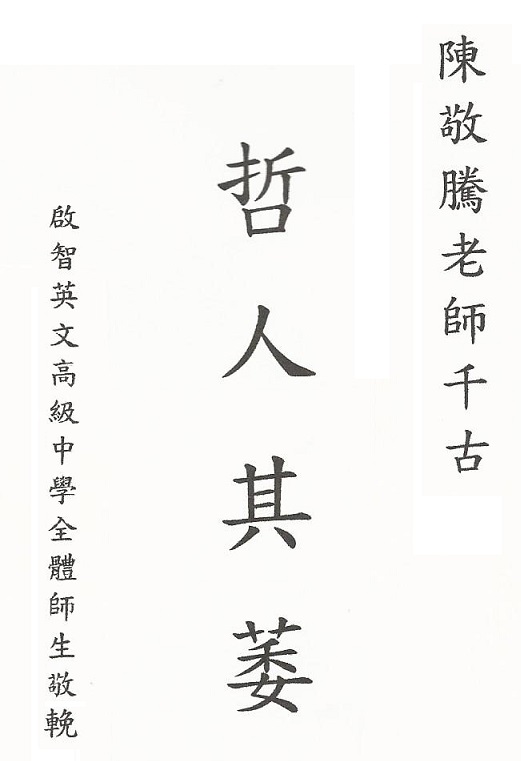 陳敬騰老師千古
哲人其萎
啟智英文高級中學全體師生敬輓